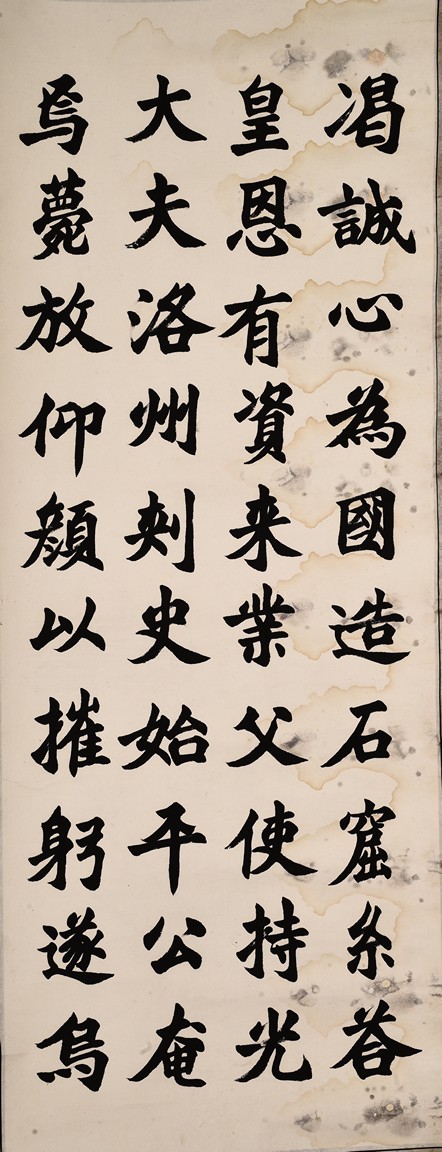 渴誠心為國造石窟系荅
皇恩有資来業父使持光
大夫洛州刾史始平公奄
焉薨放仰顔以摧躬遂烏